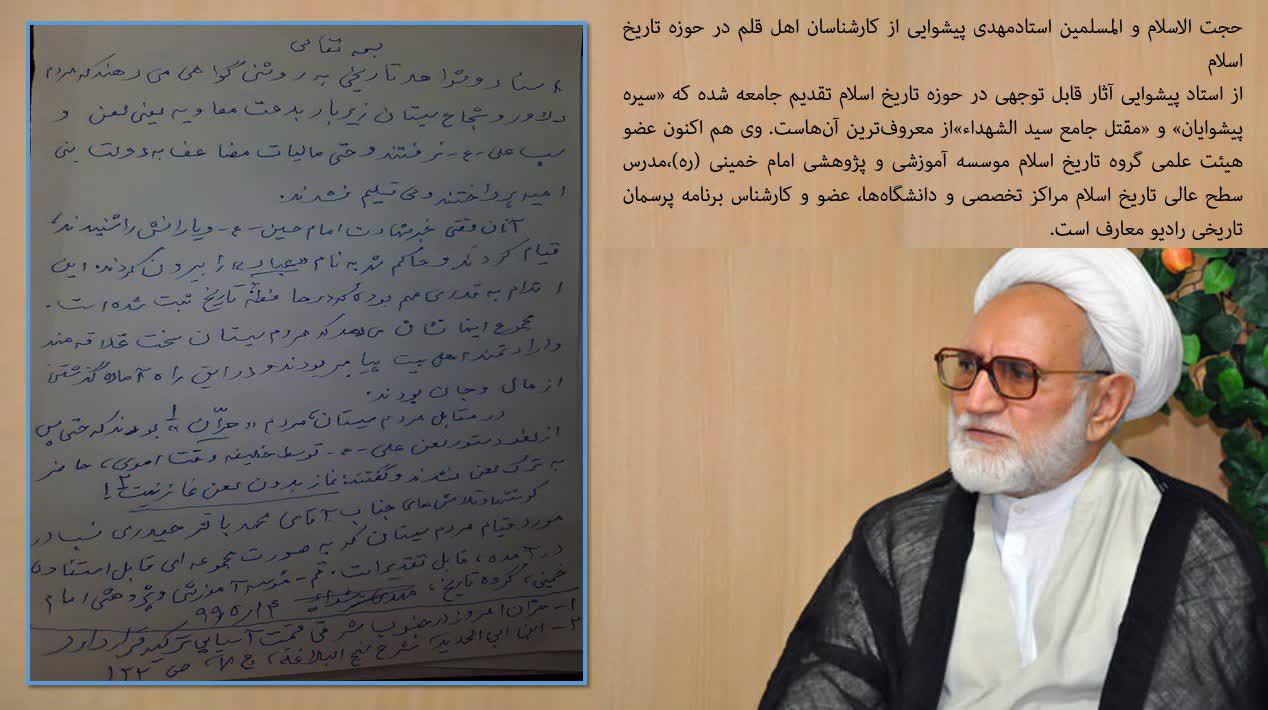 حجت الاسلام و المسلمین استادمهدی پیشوایی از کارشناسان اهل قلم در حوزه تاریخ
اسلام
از استاد پیشوایی آثار قابل توجهی در حوزه تاریخ اسلام تقدیم جامعه شده که «سیره
پیشوایان» و «مقتل جامع سید الشهداء»از معروف‌ترین آن‌هاست. وی هم اکنون عضو
هیئت علمی گروه تاریخ اسلام موسسه آموزشی و پژوهشی امام خمینی (ره)،مدرس
سطح عالی تاریخ اسلام مراکز تخصصی و دانشگاه‌ها، عضو و کارشناس برنامه پرسمان
تاریخی رادیو معارف است.
بسمه تعالی
اسناد و شواهد تاریخی به روشنی گواهی می دهند که مردم
دلاور و شجاع سیستان زیر بار بدعت معاویه یعنی لعن و
سب علی -ع- نرفتند و حتی مالیات مضاعف به دولت بنی
امیه پرداختند ولی تسلیم نشدند.
آنان وقتی خبر شهادت امام حسین -ع- و یارانش را شنیدند،
قیام کردند و حاکم شهر به نام «عباد» را بیرون کردند. این
اقدام به قدری مهم بوده که در حافظهٔ تاریخ ثبت شده است.
مجموع اینها نشان می دهد که مردم سیستان سخت علاقه مند
و ارادتمند اهل بیت پیامبر بودند و در این راه آماده گذشتن
از مال و جان بودند.
در مقابل مردم سیستان، مردم «حرّان»۱ بودند که حتی پس
از لغو دستور لعن علی -ع- توسط خلیفه وقت اموی، حاضر
به ترک لعن نشدند و گفتند: نماز بدون لعن نماز نیست۲!
کوششها و تلاش های جناب آقای محمد باقر حیدری نسب در
مورد قیام مردم سیستان که به صورت مجموعه ای قابل استفاده
در آمده، قابل تقدیر است. قم - مؤسسه آموزشی و پژوهشی امام
خمینی، گروه تاریخ، مهدی پیشوایی ۹۹/۵/۱۴
۱- حران امروز در جنوب شرقی قسمت آسیایی ترکیه قرار دارد
۲- ابن ابی الحدید، شرح نهج البلاغة، ج ۷، ص ۱۲۲